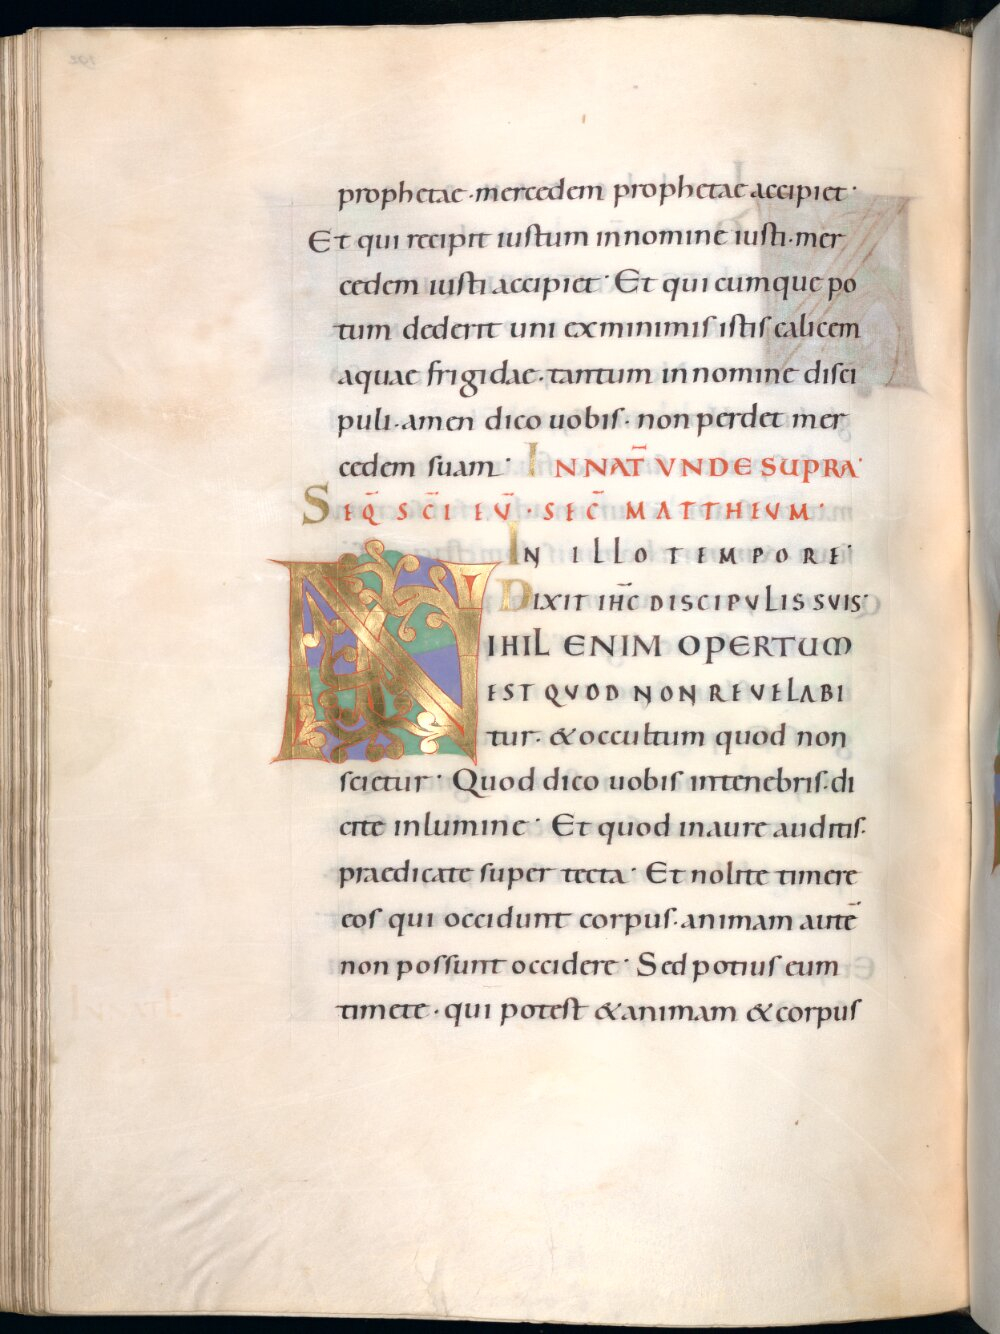 prophetae · mercedem prophetae accipiet ·
Et qui recipit iustum innomine iusti · mer
cedem iusti accipiet · Et quicumque po
tum dederit uni exminimis istis calicem
aquae frigidae · tantum innomine disci
puli · amen dico uobis · non perdet mer
cedem suam · IN NAT̄ VNDE SUPRA·
SEQ̄ SC̄I EV̄ · SEC̄ MATTHEVM·
IN ILLO TEMPORE·
DIXIT IHC̄ DISCIPVLIS SVIS·
NIHIL ENIM OPERTUM
EST QVOD NON REVELABI
tur · & occultum quod non
scietur · Quod dico uobis intenebris · di
cite inlumine · Et quod inaure auditis ·
praedicate super tecta · Et nolite timere
eos qui occidunt corpus · animam autē
non possunt occidere · Sed potius eum
timete · qui potest & animam & corpus